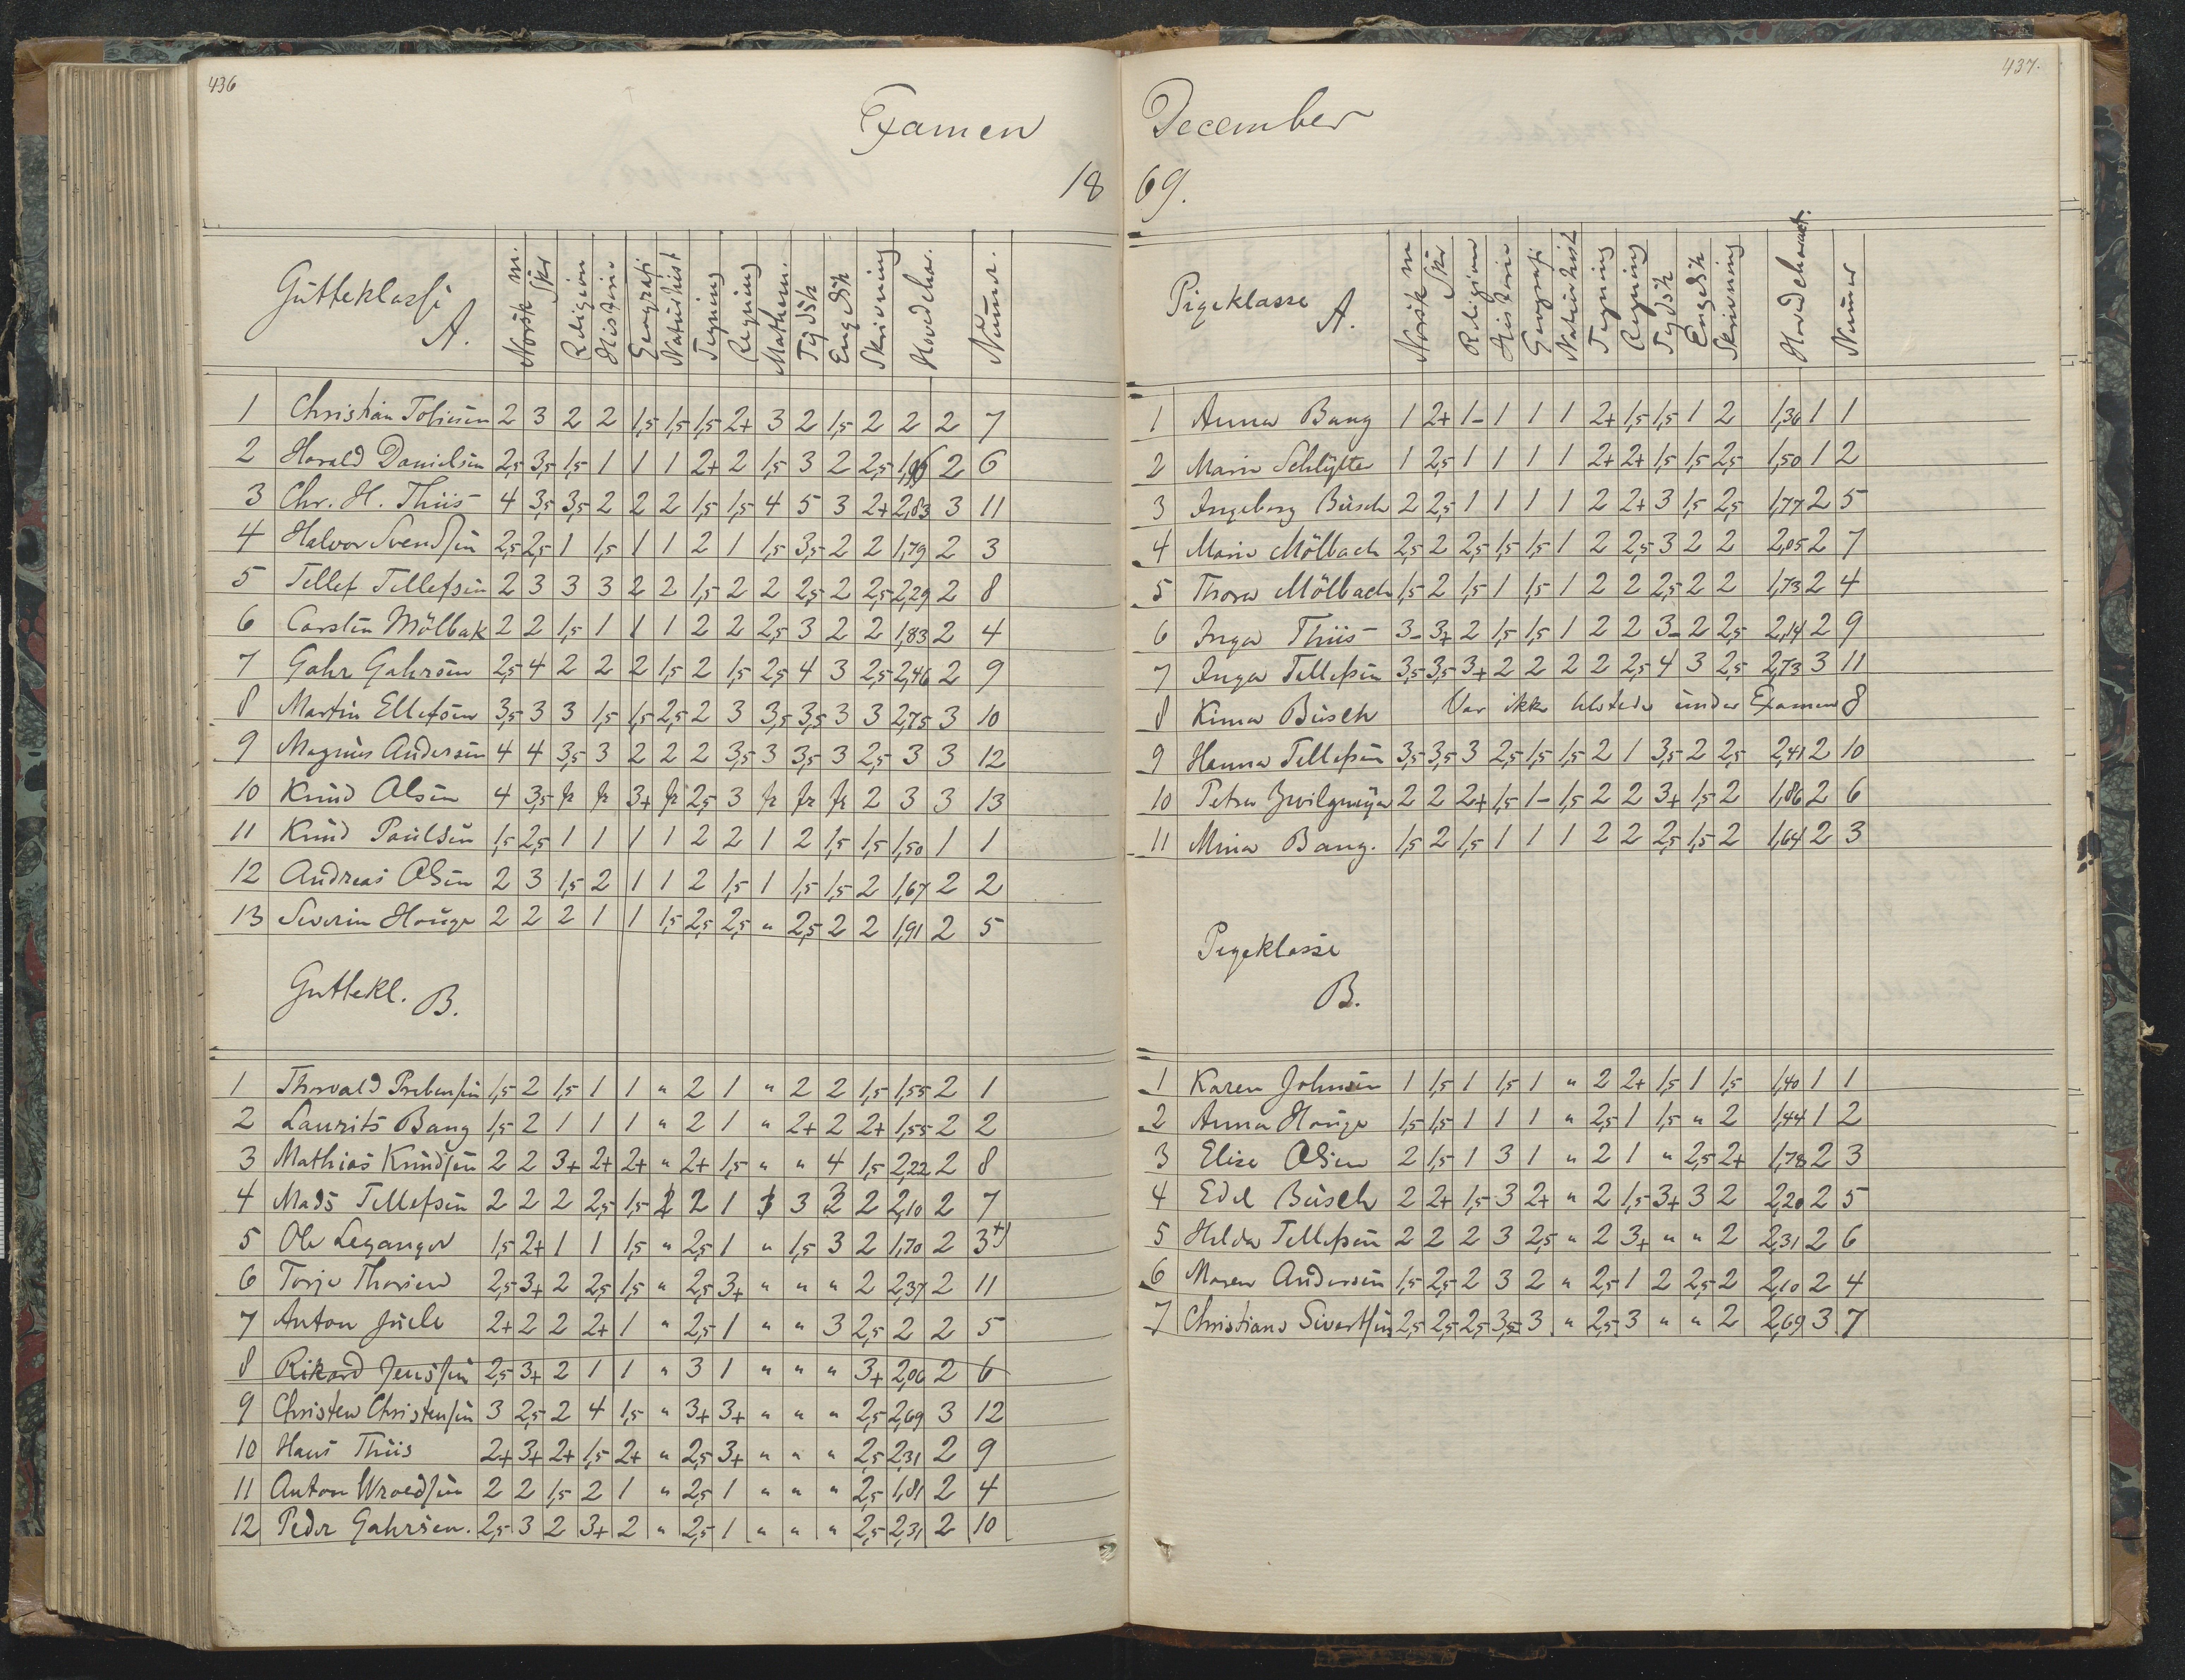 436
Examen
18
Gutteklasse A.
Norsk m. Skr Religion Historie Geografi Naturhist Tegning Regning Mathem. Tydsk Engelsk Skrivning Hovedchar. Numer.
1 Christian 2 3 2 2 1,5 1,5 1,5 2+ 3 2 1,5 2 2 2 7
2 Harald Danielsen 2,5 3,5 1,5 1 1 1 2+ 2 1,5 3 2 2,5 2 6
3 Chr. H. Thiis 4 3,5 3,5 2 2 2 1,5 1,5 4 5 3 2+ 2,83 3 11
4 Halvor Svendsen 2,5 2,5 1 1,5 1 1 2 1 1,5 3,5 2 2 1,79 2 3
5 Tellef Tellefsen 2 3 3 3 2 2 1,5 2 2 2,5 2 2,5 2,29 2 8
6 Carsten Mölbak 2 2 1,5 1 1 1 2 2 2,5 3 2 2 1,83 2 4
7 Gahr Gahrsen 2,5 4 2 2 2 1,5 2 1,5 2,5 4 3 2,5 2,46 2 9
8 Martin Ellefsen 3,5 3 3 1,5 1,5 2,5 2 3 3,5 3,5 3 3 2,75 3 10
9 Magnus Andersen 4 4 3,5 3 2 2 2 3,5 3 3,5 3 2,5 3 3 12
10 Knud Olsen 4 3,5 fr fr 3+ fr 2,5 3 fr fr fr 2 3 3 13
11 Knud Paulsen 1,5 2,5 1 1 1 1 2 2 1 2 1,5 1,5 1,50 1 1
12 Andreas Olsen 2 3 1,5 2 1 1 2 1,5 1 1,5 1,5 2 1,67 2 2
13 Severin Houge 2 2 2 1 1 1,5 2,5 2,5 " 2,5 2 2 1,91 2 5
Guttekl. B.
1 Thorvald Prebensen 1,5 2 1,5 1 1 " 2 1 " 2 2 1,5 1,55 2 1
2 Laurits Bang 1,5 2 1 1 1 " 2 1 " 2+ 2 2+ 1,55 2 2
3 Mathias Knudsen 2 2 3+ 2+ 2+ " 2+ 1,5 " " 4 1,5 2,22 2 8
4 Mads Tellefsen 2 2 2 2,5 1,5 2 1 3 2 2,10 2 7
5 Ole Leganger 1,5 2+ 1 1 1,5 " 2,5 1 " 1,5 3 2 1,70 2 3+)
6 Torje Thorsen 2,5 3+ 2 2,5 1,5 " 2,5 3+ " " " 2 2,37 2 11
7 Anton Juell 2+ 2 2 2+ 1 " 2,5 1 " " 3 2,5 2 2 5
8 Rikard Jenssen 2,5 3+ 2 1 1 " 3 1 " " " 3+ 2,06 2 6
9 Christen Christensen 3 2,5 2 4 1,5 " 3+ 3+ " " " 2,5 2,69 3 12
10 Hans Thiis 2+ 3+ 2+ 1,5 2+ " 2,5 3+ " " " 2,5 2,31 2 9
11 Anton Wroldsen 2 2 1,5 2 1 " 2,5 1 " " " 2,5 1,81 2 4
12 Peder Gahrsen. 2,5 3 2 3+ 2 " 2,5 1 " " " 2,5 2,31 2 10
437.
December
69.
Pigeklasse A.
Norsk m Skr Religion Historie Geografi Naturhist Tegning Regning Tydsk Engelsk Skrivning Hovedcharact. Numer
1 Anna Bang 1 2+ 1- 1 1 1 2+ 1,5 1,5 1 2 1,36 1 1
2 Marie Schlytter 1 2,5 1 1 1 1 2+ 2+ 1,5 1,5 2,5 1,50 1 2
3 Ingeborg Busch 2 2,5 1 1 1 1 2 2+ 3 1,5 2,5 1,77 2 5
4 Marie Mölbach 2,5 2 2,5 1,5 1,5 1 2 2,5 3 2 2 2,05 2 7
5 Thora Mölbach 1,5 2 1,5 1 1,5 1 2 2 2,5 2 2 1,73 2 4
6 Inga Thiis 3- 3+ 2 1,5 1,5 1 2 2 3- 2 2,5 2,14 2 9
7 Inga Tellefsen 3,5 3,5 3+ 2 2 2 2 2,5 4 3 2,5 2,73 3 11
8 Kima Busch Var ikke tilstede under Examen 8
9 Hanna Tellefsen 3,5 3,5 3 2,5 1,5 1,5 2 1 3,5 2 2,5 2,41 2 10
10 Petra Zwilgmeyer 2 2 2+ 1,5 1- 1,5 2 2 3+ 1,5 2 1,86 2 6
11 Mina Bang. 1,5 2 1,5 1 1 1 2 2 2,5 1,5 2 1,64 2 3
Pigeklasse
B.
1 Karen Johnsen 1 1,5 1 1,5 1 " 2 2+ 1,5 1 1,5 1,40 1 1
2 Anna Houge 1,5 1,5 1 1 1 " 2,5 1 1,5 " 2 1,44 1 2
3 Elise Olsen 2 1,5 1 3 1 " 2 1 " 2,5 2+ 1,78 2 3
4 Edel Busch 2 2+ 1,5 3 2+ " 2 1,5 3+ 3 2 2,20 2 5
5 Helda Tellefsen 2 2 2 3 2,5 " 2 3+ " " 2 2,31 2 6
6 Maren Andersen 1,5 2,5 2 3 2 " 2,5 1 2 2,5 2 2,10 2 4
7 Christiane Sivertsen 2,5 2,5 2,5 3,5 3 " 2,5 3 " " 2 2,69 3 7